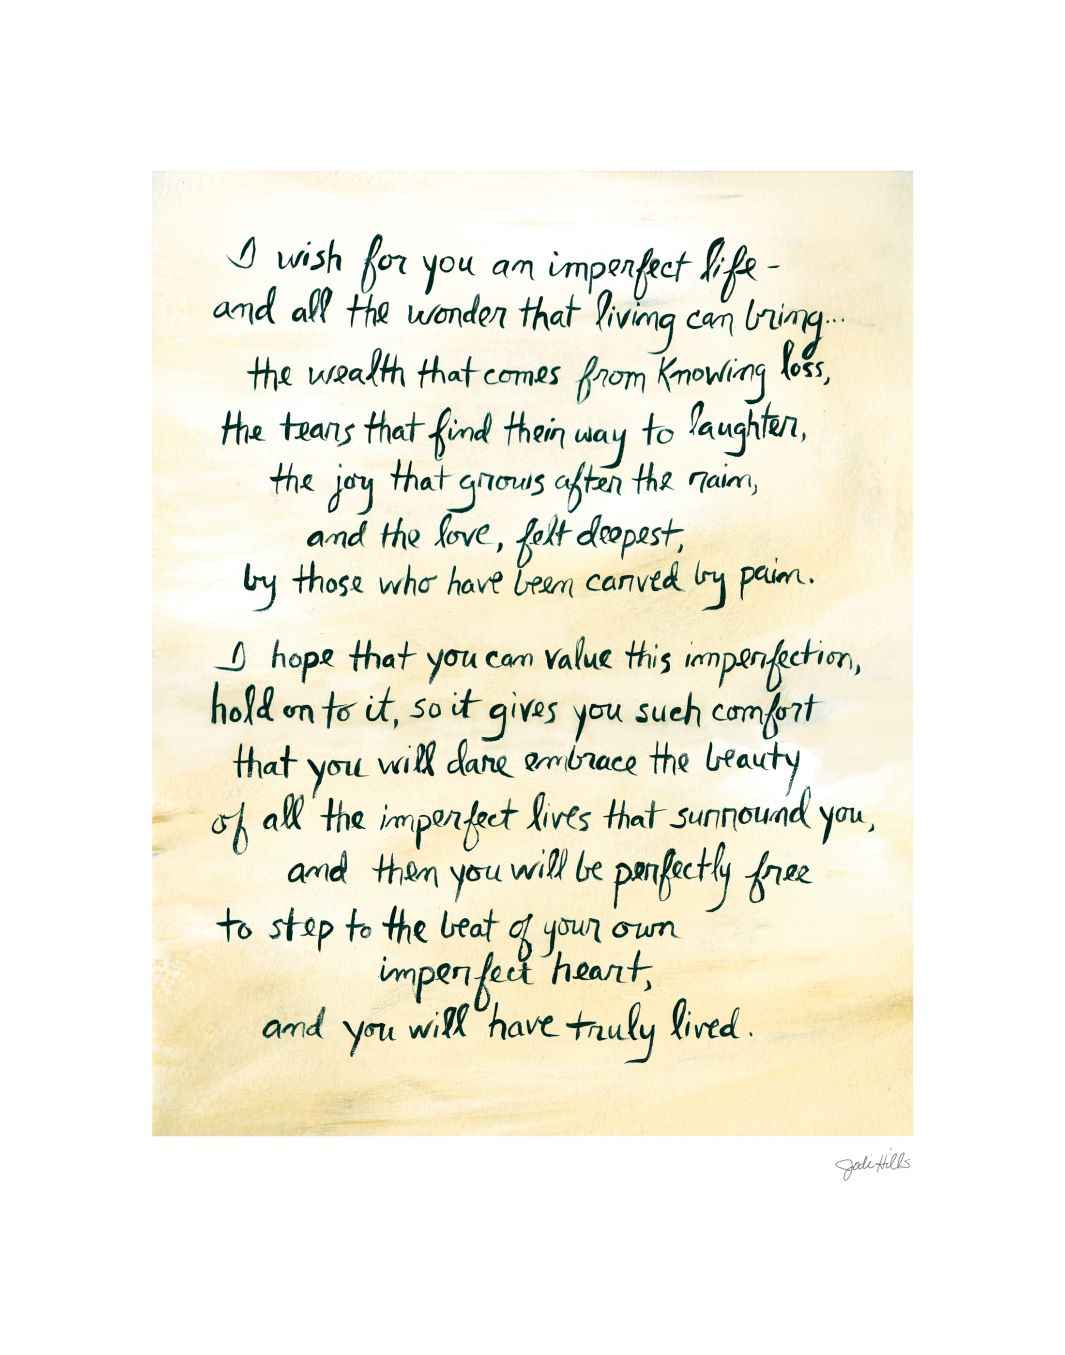 I wish for you an imperfect life -
and all the wonder that living can bring...
the wealth that comes from knowing loss,
the tears that find their way to laughter,
the joy that grows after the rain,
and the love, felt deepest,
by those who have been carved by pain.
I hope that you can value this imperfection,
hold on to it, so it gives you such comfort
that you will dare embrace the beauty
of all the imperfect lives that surround you,
and then you will be perfectly free
to step to the beat of your own
imperfect heart,
and you will have truly lived.
Jodi Hills